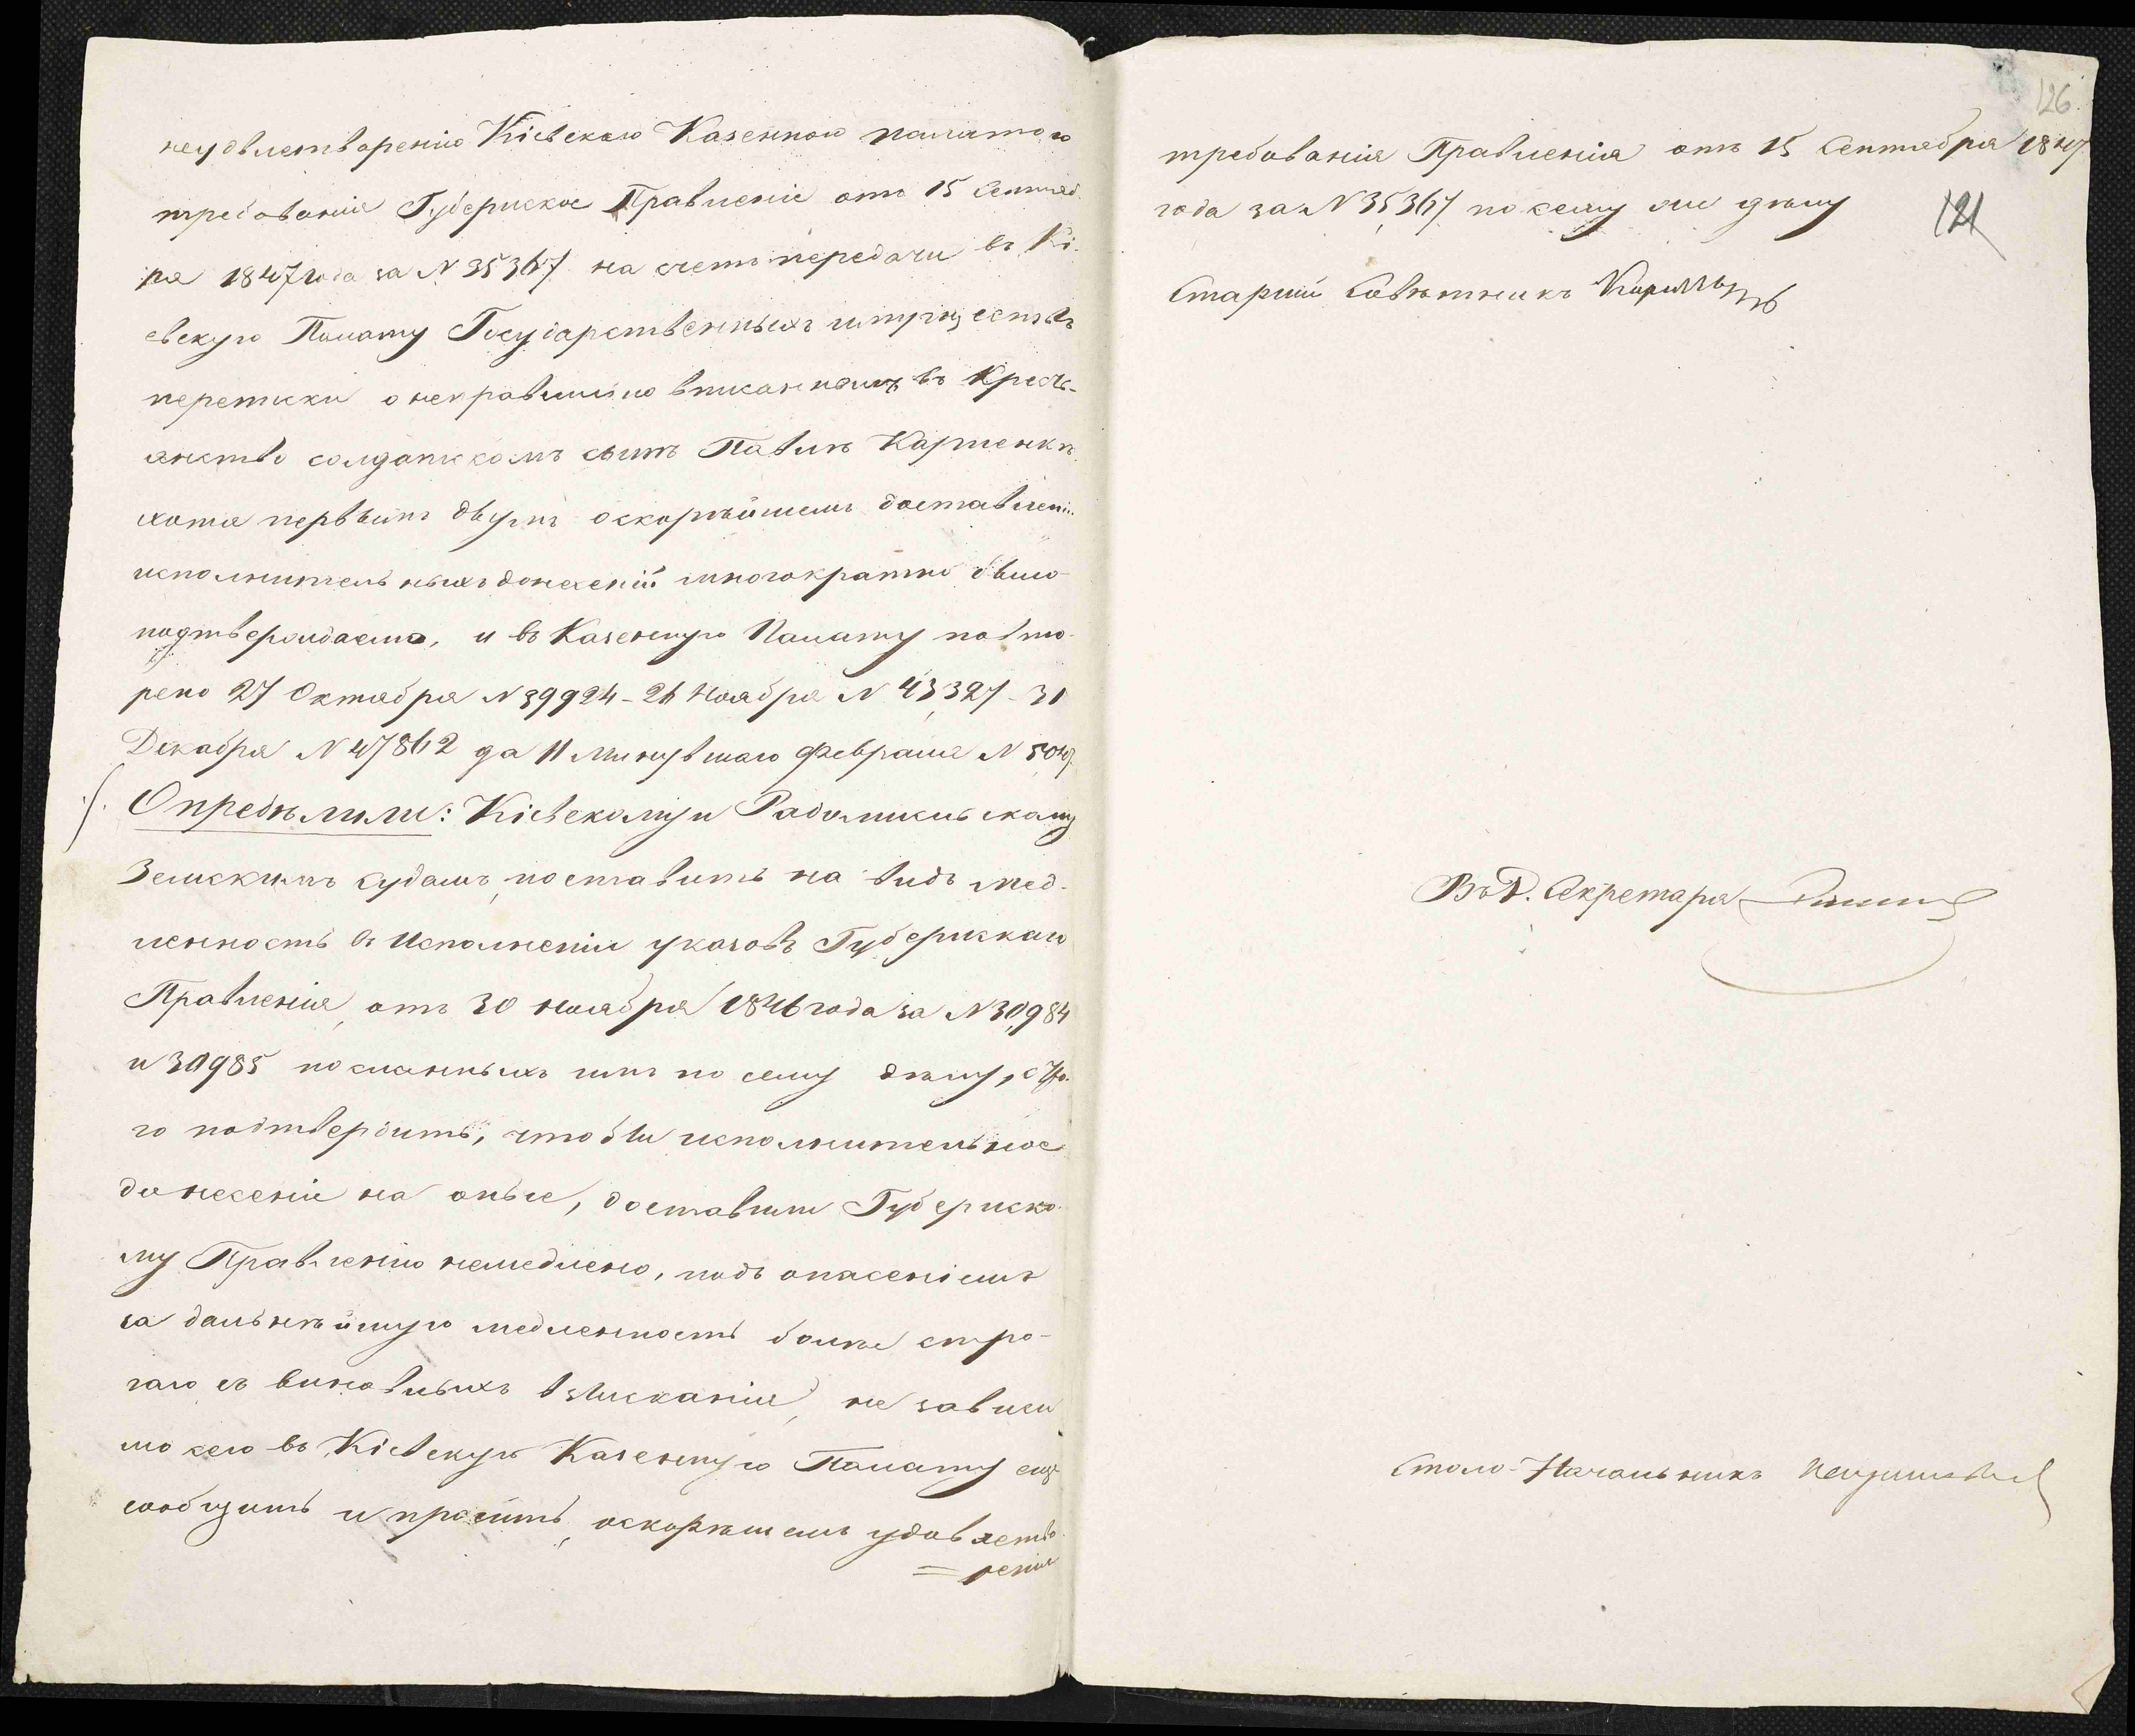 неудвлетворенію Кіевскою Казенною палатою
требованія Губернское Правленіе отъ 15 Сентяб
ря 1847 года за N 35367 на счетъ передачи въ Кі-
евскую Палату Государственныхъ имуществъ
переписки о неправильно вписанномъ въ Кресть-
янство солдатскомъ сынѣ Павлѣ Карпенкѣ
хотя первымъ двумъ о скорѣйшемъ доставлені
исполнительныхъ донесеній многократно было
подтверждаемо, и въ Казенную Палату повто-
рено 27 Октября N 39924 - 26 Ноября N 43,327 - 31
Декабря N 47862 да 11 Минувшаго Февраля N
Опредѣлили: Кіевскому и Радомысльскому
Земскимъ судамъ, поставить на видъ мед-
ленность въ Исполненіи указовъ Губернскаго
Правленія, отъ 30 Ноября 1846 года за N 30,984
и 30985 посланныхъ имъ по сему дѣлу,
го подтвердить, чтобы исполнительное
донесеніе на оные, доставили Губернско-
му Правленію немедлено, подъ опасеніемъ
за дальнѣйшую медленность болѣе стро-
гаго съ виновныхъ взысканія, не зависи
мо сего въ Кіевскую Казенную Палату еще
сообщить и просить, о скорѣшемъ удовлетво
= реніи
126.
требованія Правленія отъ 15 Сентября 1847
года за N 35,367 по сему же дѣлу
121
Старшій Совѣтникъ
Въ Д. Секретаря
Столо-Начальникъ